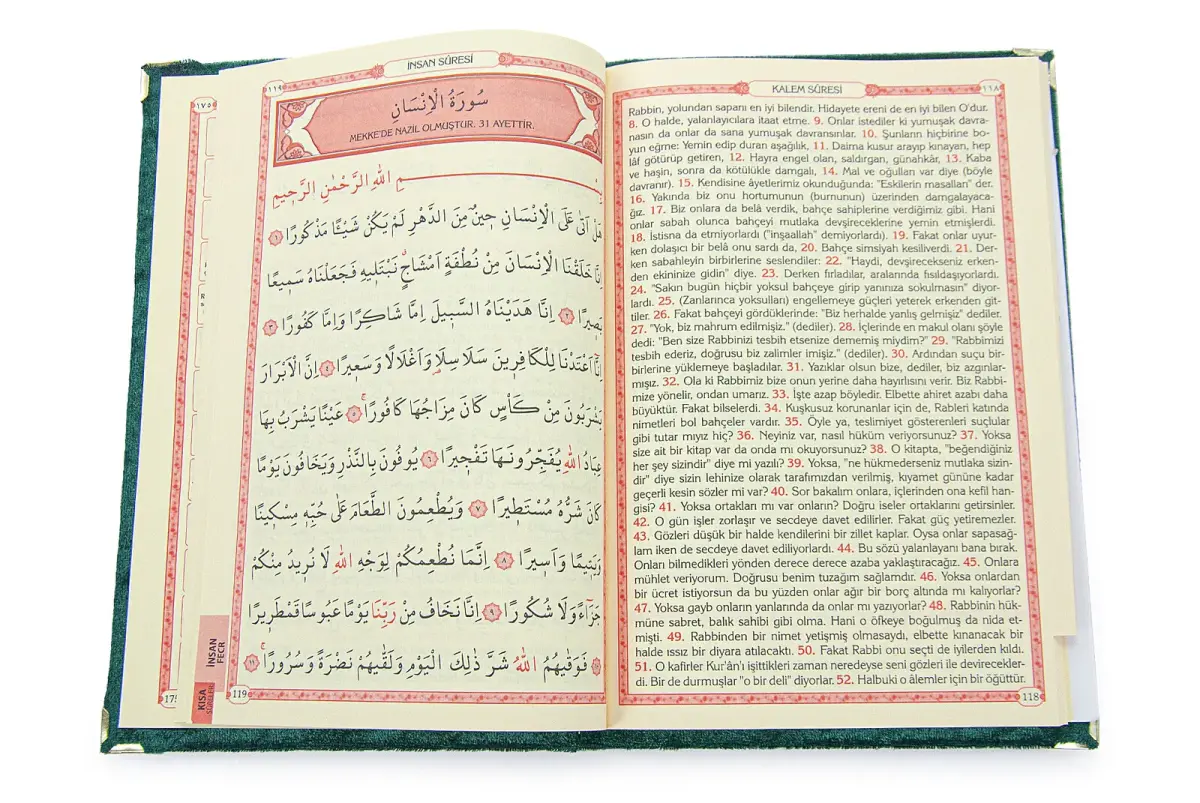 KALEM SÛRESİ
١١٨
Rabbin, yolundan sapanı en iyi bilendir. Hidayete ereni de en iyi bilen O'dur.
8. O halde, yalanlayıcılara itaat etme. 9. Onlar istediler ki yumuşak davra-
nasın da onlar da sana yumuşak davransınlar. 10. Şunların hiçbirine bo-
yun eğme: Yemin edip duran aşağılık, 11. Daima kusur arayıp kınayan, hep
lâf götürüp getiren, 12. Hayra engel olan, saldırgan, günahkâr, 13. Kaba
ve haşin, sonra da kötülükle damgalı, 14. Mal ve oğulları var diye (böyle
davranır). 15. Kendisine âyetlerimiz okunduğunda: "Eskilerin masalları" der.
16. Yakında biz onu hortumunun (burnunun) üzerinden damgalayaca-
ğız. 17. Biz onlara da belâ verdik, bahçe sahiplerine verdiğimiz gibi. Hani
onlar sabah olunca bahçeyi mutlaka devşireceklerine yemin etmişlerdi.
18. İstisna da etmiyorlardı ("inşaallah" demiyorlardı). 19. Fakat onlar uyur-
ken dolaşıcı bir belâ onu sardı da, 20. Bahçe simsiyah kesiliverdi. 21. Der-
ken sabahleyin birbirlerine seslendiler: 22. "Haydi, devşirecekseniz erken-
den ekininize gidin" diye. 23. Derken fırladılar, aralarında fısıldaşıyorlardı.
24. "Sakın bugün hiçbir yoksul bahçeye girip yanınıza sokulmasın" diyor-
lardı. 25. (Zanlarınca yoksulları) engellemeye güçleri yeterek erkenden git-
tiler. 26. Fakat bahçeyi gördüklerinde: "Biz herhalde yanlış gelmişiz" dediler.
27. "Yok, biz mahrum edilmişiz." (dediler). 28. İçlerinde en makul olanı şöyle
dedi: "Ben size Rabbinizi tesbih etsenize dememiş miydim?" 29. "Rabbimizi
tesbih ederiz, doğrusu biz zalimler imişiz." (dediler). 30. Ardından suçu bir-
birlerine yüklemeye başladılar. 31. Yazıklar olsun bize, dediler, biz azgınlar-
mışız. 32. Ola ki Rabbimiz bize onun yerine daha hayırlısını verir. Biz Rabbi-
mize yönelir, ondan umarız. 33. İşte azap böyledir. Elbette ahiret azabı daha
büyüktür. Fakat bilselerdi. 34. Kuşkusuz korunanlar için de, Rableri katında
nimetleri bol bahçeler vardır. 35. Öyle ya, teslimiyet gösterenleri suçlular
gibi tutar mıyız hiç? 36. Neyiniz var, nasıl hüküm veriyorsunuz? 37. Yoksa
size ait bir kitap var da onda mı okuyorsunuz? 38. O kitapta, "beğendiğiniz
her şey sizindir" diye mi yazılı? 39. Yoksa, "ne hükmederseniz mutlaka sizin-
dir" diye sizin lehinize olarak tarafımızdan verilmiş, kıyamet gününe kadar
geçerli kesin sözler mi var? 40. Sor bakalım onlara, içlerinden ona kefil han-
gisi? 41. Yoksa ortakları mı var onların? Doğru iseler ortaklarını getirsinler.
42. O gün işler zorlaşır ve secdeye davet edilirler. Fakat güç yetiremezler.
43. Gözleri düşük bir halde kendilerini bir zillet kaplar. Oysa onlar sapasağ-
lam iken de secdeye davet ediliyorlardı. 44. Bu sözü yalanlayanı bana bırak.
Onları bilmedikleri yönden derece derece azaba yaklaştıracağız. 45. Onlara
mühlet veriyorum. Doğrusu benim tuzağım sağlamdır. 46. Yoksa onlardan
bir ücret istiyorsun da bu yüzden onlar ağır bir borç altında mı kalıyorlar?
47. Yoksa gayb onların yanlarında da onlar mı yazıyorlar? 48. Rabbinin hük-
müne sabret, balık sahibi gibi olma. Hani o öfkeye boğulmuş da nida et-
mişti. 49. Rabbinden bir nimet yetişmiş olmasaydı, elbette kınanacak bir
halde ıssız bir diyara atılacaktı. 50. Fakat Rabbi onu seçti de iyilerden kıldı.
51. O kafirler Kur'ân'ı işittikleri zaman neredeyse seni gözleri ile devirecekler-
di. Bir de durmuşlar "o bir deli" diyorlar. 52. Halbuki o âlemler için bir öğüttür.
118
١١٩
İNSAN SÛRESİ
سُورَةُ الْاِنْسَانِ
MEKKE'DE NAZİL OLMUŞTUR. 31 AYETTİR.
بِسْمِ اللّٰهِ الرَّحْمٰنِ الرَّحٖيمِ
هَلْ اَتٰى عَلَى الْاِنْسَانِ حٖينٌ مِنَ الدَّهْرِ لَمْ يَكُنْ شَيْئًا مَذْكُورًا ١
اِنَّا خَلَقْنَا الْاِنْسَانَ مِنْ نُطْفَةٍ اَمْشَاجٍۗ نَبْتَلٖيهِ فَجَعَلْنَاهُ سَمٖيعًا
بَصٖيرًا ٢ اِنَّا هَدَيْنَاهُ السَّبٖيلَ اِمَّا شَاكِرًا وَاِمَّا كَفُورًا ٣
اِنَّٓا اَعْتَدْنَا لِلْكَافِرٖينَ سَلَاسِلَا وَاَغْلَالًا وَسَعٖيرًا ٤ اِنَّ الْاَبْرَارَ
يَشْرَبُونَ مِنْ كَأْسٍ كَانَ مِزَاجُهَا كَافُورًاۚ ٥ عَيْنًا يَشْرَبُ بِهَا
عِبَادُ اللّٰهِ يُفَجِّرُونَهَا تَفْجٖيرًا ٦ يُوفُونَ بِالنَّذْرِ وَيَخَافُونَ يَوْمًا
كَانَ شَرُّهُ مُسْتَطٖيرًا ٧ وَيُطْعِمُونَ الطَّعَامَ عَلٰى حُبِّهٖ مِسْكٖينًا
وَيَتٖيمًا وَاَسٖيرًا ٨ اِنَّمَا نُطْعِمُكُمْ لِوَجْهِ اللّٰهِ لَا نُرٖيدُ مِنْكُمْ
جَزَٓاءً وَلَا شُكُورًا ٩ اِنَّا نَخَافُ مِنْ رَبِّنَا يَوْمًا عَبُوسًا قَمْطَرٖيرًا
١٠ فَوَقٰيهُمُ اللّٰهُ شَرَّ ذٰلِكَ الْيَوْمِ وَلَقّٰيهُمْ نَضْرَةً وَسُرُورًاۚ ١١
119
İNSAN
FECR
KISA
SÛRELER
١٧٥
175